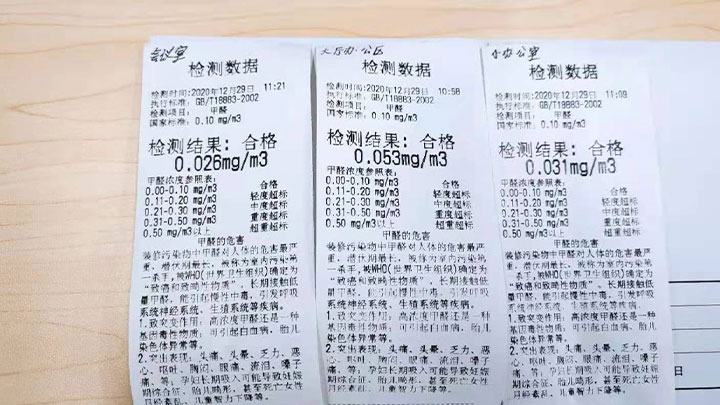 会议室
检测数据
检测时间:2020年12月29日 11:21
执行标准: GB/T18883-2002
检测项目: 甲醛
国家标准: 0.10 mg/m3
检测结果: 合格
0.026mg/m3
甲醛浓度参照表:
0.00-0.10 mg/m3 合格
0.11-0.20 mg/m3 轻度超标
0.21-0.30 mg/m3 中度超标
0.31-0.50 mg/m3 重度超标
0.50 mg/m3以上 超重超标
甲醛的危害
装修污染物中甲醛对人体的危害最严
重, 潜伏期最长, 被称为室内污染第
一杀手,被WHO(世界卫生组织)确定为
“致癌和致畸性物质”。长期接触低
量甲醛, 能引起慢性中毒, 引发呼吸
系统神经系统、生殖系统等疾病。
1.致突变作用: 高浓度甲醛还是一种
基因毒性物质; 可引起白血病、胎儿
染色体异常等。
2.突出表现: 头痛、头晕、乏力、恶
心、呕吐、胸闷、眼痛、流泪、嗓子
痛, 等; 孕妇长期吸入可能导致妊娠
期综合征、胎儿畸形, 甚至死亡女性
月经紊乱、儿童智力下降等。
大厅办公区
检测数据
检测时间:2020年12月29日 10:58
执行标准: GB/T18883-2002
检测项目: 甲醛
国家标准: 0.10 mg/m3
检测结果: 合格
0.053mg/m3
甲醛浓度参照表:
0.00-0.10 mg/m3 合格
0.11-0.20 mg/m3 轻度超标
0.21-0.30 mg/m3 中度超标
0.31-0.50 mg/m3 重度超标
0.50 mg/m3以上 超重超标
甲醛的危害
装修污染物中甲醛对人体的危害最严
重, 潜伏期最长, 被称为室内污染第
一杀手,被WHO(世界卫生组织)确定为
“致癌和致畸性物质”。长期接触低
量甲醛, 能引起慢性中毒, 引发呼吸
系统神经系统、生殖系统等疾病。
1.致突变作用: 高浓度甲醛还是一种
基因毒性物质; 可引起白血病、胎儿
染色体异常等。
2.突出表现: 头痛、头晕、乏力、恶
心、呕吐、胸闷、眼痛、流泪、嗓子
痛, 等; 孕妇长期吸入可能导致妊娠
期综合征、胎儿畸形, 甚至死亡女性
月经紊乱、儿童智力下降等。
小办公室
检测数据
检测时间:2020年12月29日 11:09
执行标准: GB/T18883-2002
检测项目: 甲醛
国家标准: 0.10 mg/m3
检测结果: 合格
0.031mg/m3
甲醛浓度参照表:
0.00-0.10 mg/m3 合格
0.11-0.20 mg/m3 轻度超标
0.21-0.30 mg/m3 中度超标
0.31-0.50 mg/m3 重度超标
0.50 mg/m3以上 超重超标
甲醛的危害
装修污染物中甲醛对人体的危害最严
重, 潜伏期最长, 被称为室内污染第
一杀手,被WHO(世界卫生组织)确定为
“致癌和致畸性物质”。长期接触低
量甲醛, 能引起慢性中毒, 引发呼吸
系统神经系统、生殖系统等疾病。
1.致突变作用: 高浓度甲醛还是一种
基因毒性物质; 可引起白血病、胎儿
染色体异常等。
2.突出表现: 头痛、头晕、乏力、恶
心、呕吐、胸闷、眼痛、流泪、嗓子
痛, 等; 孕妇长期吸入可能导致妊娠
期综合征、胎儿畸形, 甚至死亡女性
月经紊乱、儿童智力下降等。
日